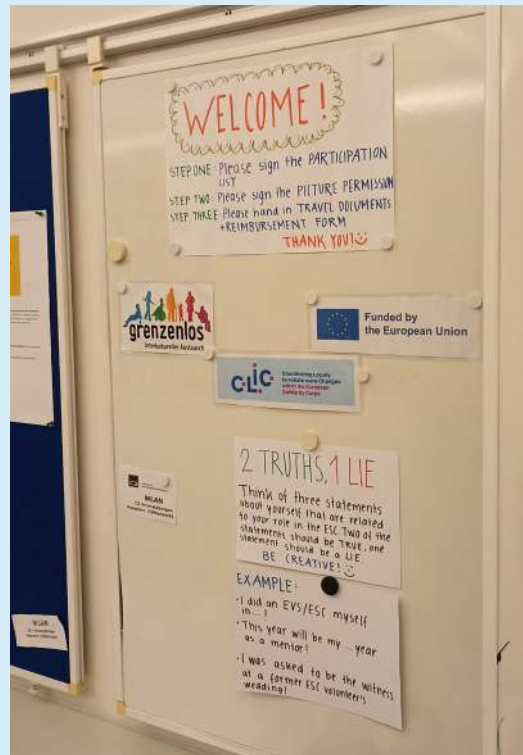 WELCOME!
STEP ONE: Please sign the PARTICIPATION
LIST
STEP TWO: Please sign the PICTURE PERMISSION
STEP THREE: Please hand in TRAVEL DOCUMENTS
+REIMBURSEMENT FORM
THANK YOU!
grenzenlos
Interkultureller Austausch
Funded by
the European Union
CLIC
Coordinating Locally
to Initiate more Changes
within the European
Solidarity Corps
WLAN
2 TRUTHS, 1 LIE
Think of three statements
about yourself that are related
to your role in the ESC. Two of the
statements should be TRUE, one
statement should be a LIE.
BE CREATIVE!
EXAMPLE:
· I did an EVS/ESC myself
in...!
· This year will be my ...year
as a mentor!
· I was asked to be the witness
at a former ESC volunteer's
wedding!
WLAN